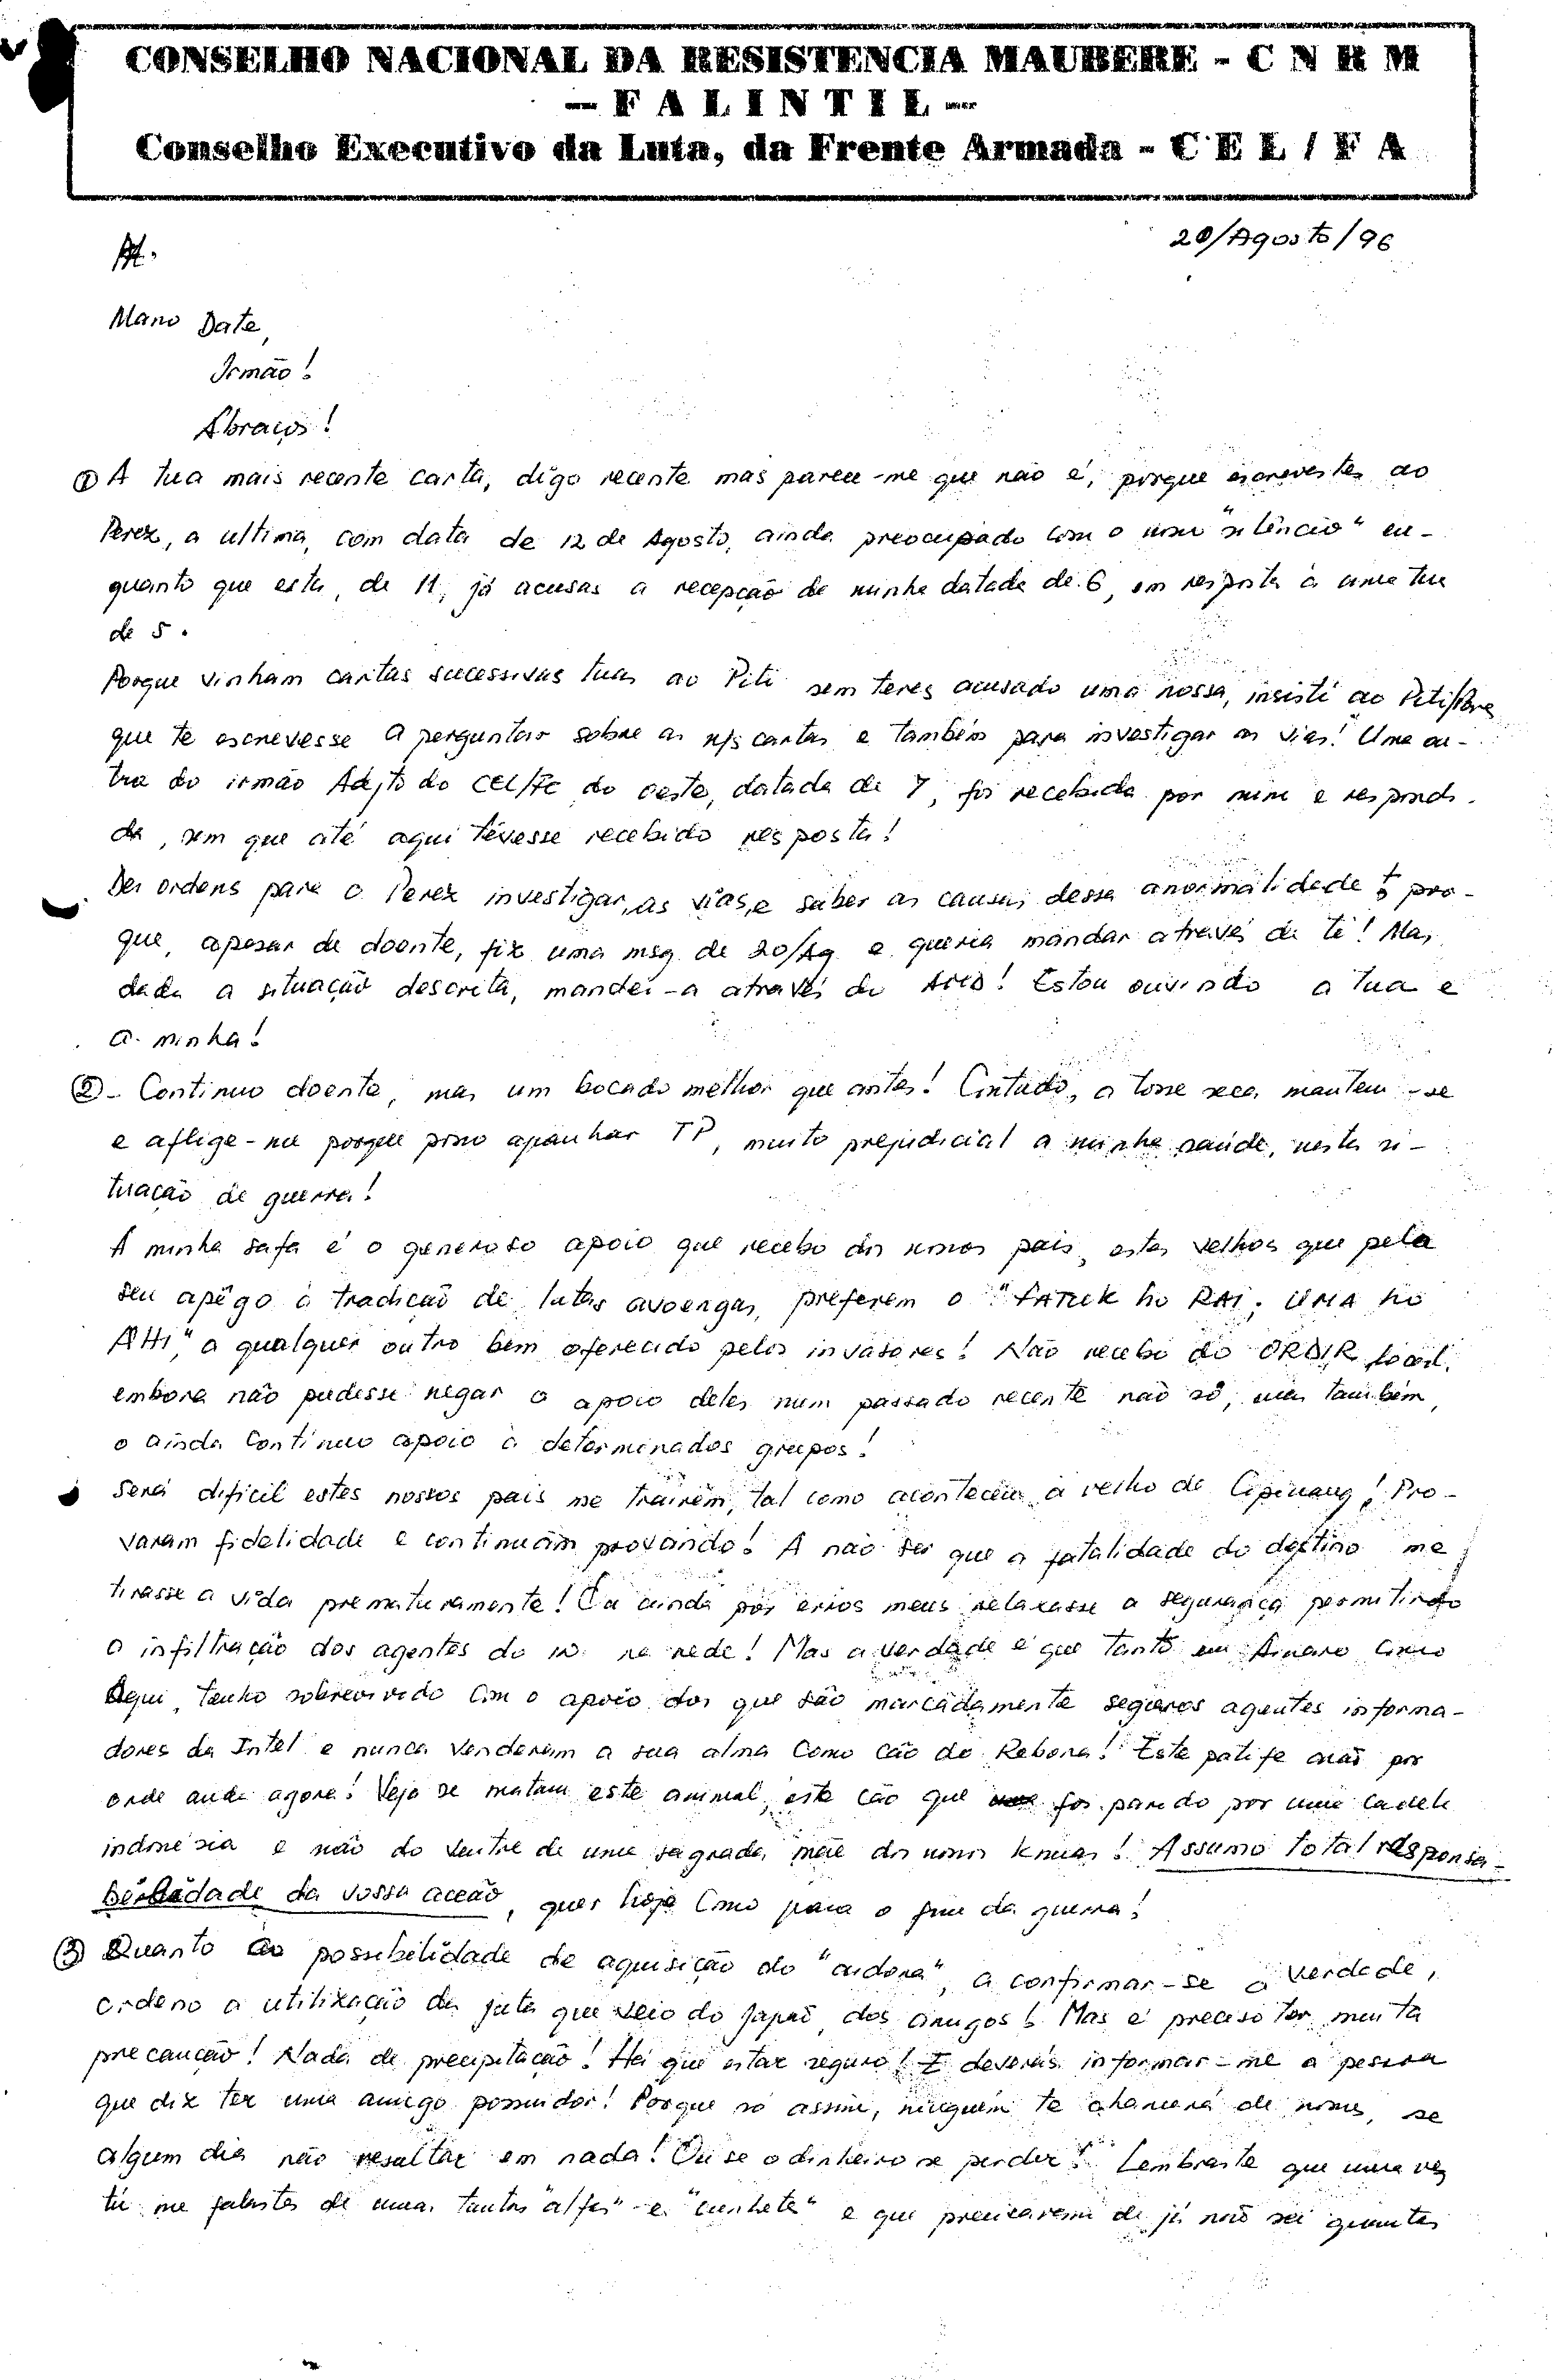 CONSELHO NACIONAL DA RESISTENCIA MAUBERE - C N R M
— F A L I N T I L —
Conselho Executivo da Luta, da Frente Armada - C E L / F A
20/Agosto/96
At.
Mano Date,
Irmão!
Abraços!
① A tua mais recente carta, digo recente mas parece-me que não é, porque escrevestes ao
Perez, a ultima, com data de 12 de Agosto, ainda preocupado com o meu "silêncio" en-
quanto que esta, de 11, já acusas a recepção da minha datada de 6, em resposta à uma tua
de 5.
Porque vinham cartas sucessivas tuas ao Piti sem teres acusado uma nossa, insisti ao Piti
que te escrevesse a perguntar sobre as n/s cartas e também para investigar as vias! Uma ou-
tra do irmão Adjto do CEL/FC do oeste, datada de 7, foi recebida por mim e respondi-
da, sem que até aqui tivesse recebido resposta!
Dei ordens para o Perez investigar, as vias, e saber as causas dessa anormalidade pro-
que, apesar de doente, fiz uma msg. de 20/Ag. e queria mandar através de ti! Mas,
dada a situação descrita, mandei-a através do! Estou ouvindo a tua e
a minha!
②- Continuo doente, mas um bocado melhor que antes! Contudo, a tosse seca mantem-se
e aflige-me porque posso apanhar TP, muito prejudicial a minha saúde, nesta si-
tuação de guerra!
A minha safa é o generoso apoio que recebo dos nossos pais, estes velhos que pela
seu apêgo à tradição de lutas avoengas, preferem o "FATUK ho RAI, UMA ho
AHI" a qualquer outro bem oferecido pelos invasores! Não recebo do ORDIR local,
embora não pudesse negar o apoio deles num passado recente não só, mas também,
o ainda continuo apoio à determinados grupos!
Será dificil estes nossos pais me trairêm, tal como aconteceu à velho de Cipinang! Pro-
varam fidelidade e continuam provando! A não ser que a fatalidade do destino me
tirasse a vida prematuramente! Ou ainda por erros meus relaxasse a segurança permitindo
a infiltração dos agentes do in. na rede! Mas a verdade é que tanto em Ainaro como
Aqui, tenho sobrevivido com o apoio dos que são marcadamente seguros agentes informa-
dores da Intel e nunca venderam a sua alma como cão do Rebona! Este patife anda por
onde anda agora! Veja se matam este animal, este cão que foi parido por uma cadela
indonésia e não do ventre de uma sagrada mãe dos nossos knuas! Assumo total responsa-
bilidade da vossa acção, quer hoje como para o fim da guerra!
③ Quanto ao possibilidade de aquisição do "aidona", a confirmar-se a verdade,
ordeno a utilização da juta que veio do Japão, dos amigos! Mas é preciso ter muita
precaução! Nada de precipitação! Há que estar seguro! E deverás informar-me a pessoa
que diz ter uma amigo possuidor! Porque só assim, ninguém te chamará de nomes, se
algum dia não resultar em nada! Ou se o dinheiro se perder! Lembraste que uma vez
tu me falastes de umas tantas "alfas" e "cunhete" e que precisaram de já não sei quantas